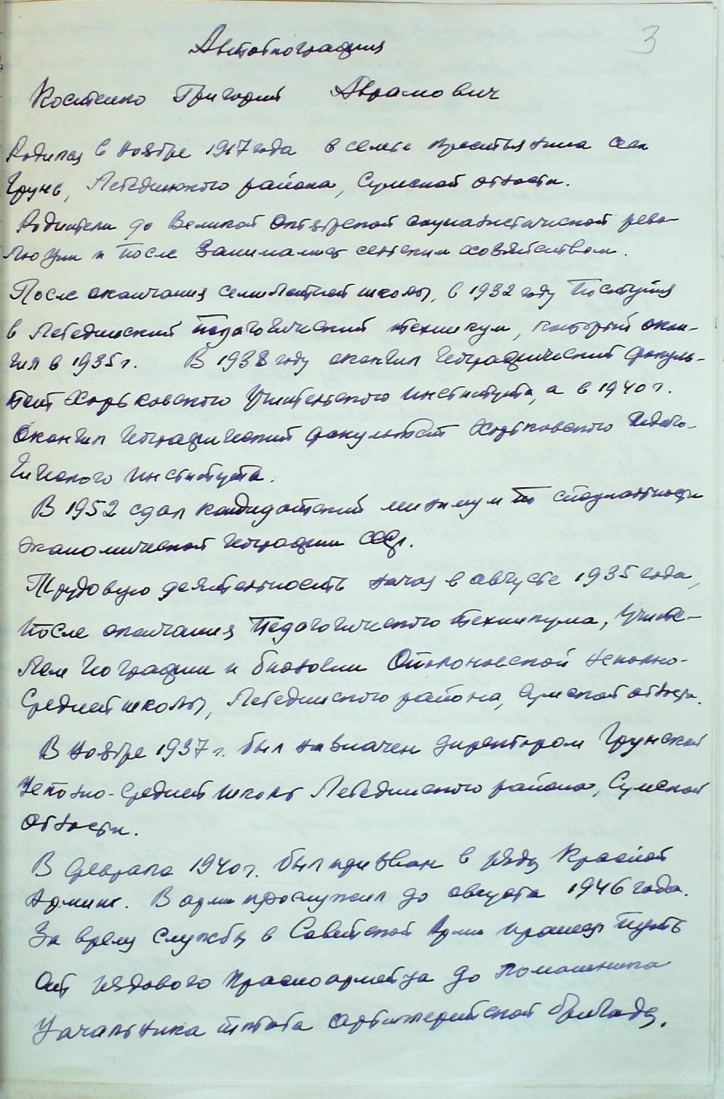 3
Автобиография
Костенко Григорий Абрамович
Родился в ноябре 1917 года в семье крестьянина села
Грунь, Лебединского района, Сумской области.
Родители до Великой Октябрьской социалистической рево-
люции и после занимались сельским хозяйством.
После окончания семилетней школы, в 1932 году поступил
в Лебединский педагогический техникум, который окон-
чил в 1935 г. В 1938 году окончил географический факуль-
тет Харьковского Учительского института, а в 1940 г.
окончил географический факультет Харьковского Педаго-
гического института.
В 1952 сдал кандидатский минимум по специальности
экономической географии СССР.
Трудовую деятельность начал в августе 1935 года,
после окончания педагогического техникума, учите-
лем географии и биологии неполно-
средней школы, Лебединского района, Сумской области.
В ноябре 1937 г. был назначен директором Грунской
неполно-средней школы Лебединского района, Сумской
области.
В феврале 1940 г. был призван в ряды Красной
Армии. В армии прослужил до августа 1946 года.
За время службы в Советской Армии прошел путь
от рядового красноармейца до помошника
начальника штаба артиллерийской бригады.